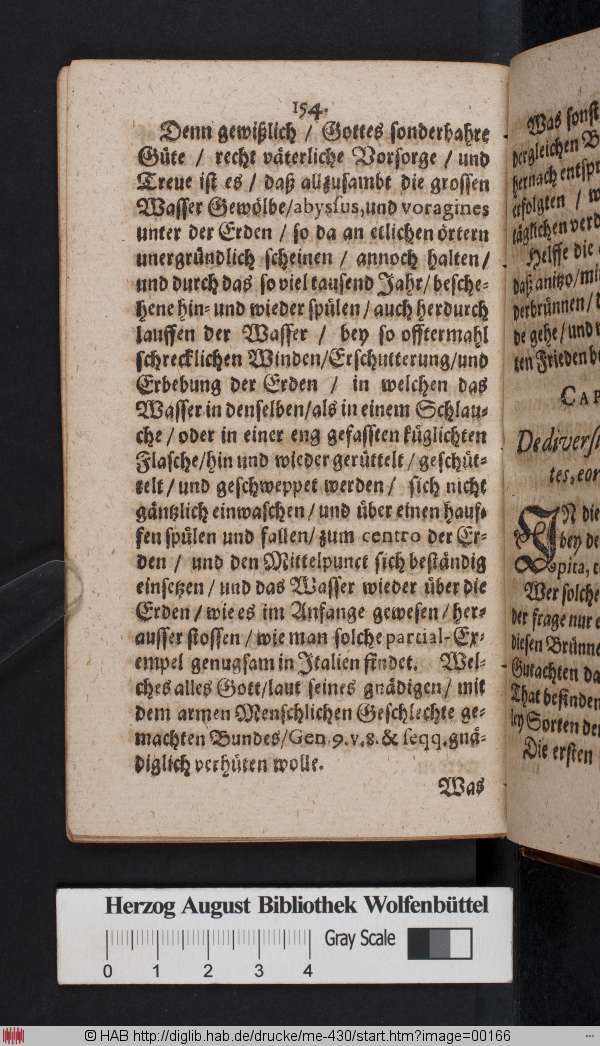 154.
Denn gewißlich / Gottes sonderbahre
Güte / recht väterliche Vorsorge / und
Treue ist es / daß allzusambt die grossen
Wasser Gewölbe/abyssus,und voragines
unter der Erden / so da an etlichen örtern
unergründlich scheinen / annoch halten/
und durch das so viel tausend Jahr/besche-
hene hin- und wieder spülen / auch herdurch
lauffen der Wasser / bey so offtermahl
schrecklichen Winden/Erschutterung/und
Erbebung der Erden / in welchen das
Wasser in denselben/als in einem Schlau-
che / oder in einer eng gefassten küglichten
Flasche/hin und wieder gerüttelt / geschüt-
telt / und geschweppet werden / sich nicht
gäntzlich einwaschen / und über einen hauf-
fen spülen und fallen/zum centro der Er-
den / und den Mittelpunct sich beständig
einsetzen / und das Wasser wieder über die
Erden / wie es im Anfange gewesen / her-
ausser stossen / wie man solche partial-Ex-
empel genugsam in Italien findet. Wel-
ches alles Gott/laut seines gnädigen / mit
dem armen Menschlichen Geschlechte ge-
machten Bundes/Gen.9.v.8.& seqq.gnä-
diglich verhüten wolle.
Was
Was sonst
dergleichen B
hernach entspr
erfolgten / w
täglichen verd
Helffe die
daß anitzo/mi
derbrünnen / d
de gehe/und
ten Frieden b
CAP
De diversi
tes, eor
IN die
bey de
pita, e
Wer solche
der frage nur e
diesen Brünne
Gutachten da
That befinden
ley Sorten der
Die ersten
Herzog August Bibliothek Wolfenbüttel
Gray Scale
0 1 2 3 4
© HAB http://diglib.hab.de/drucke/me-430/start.htm?image=00166